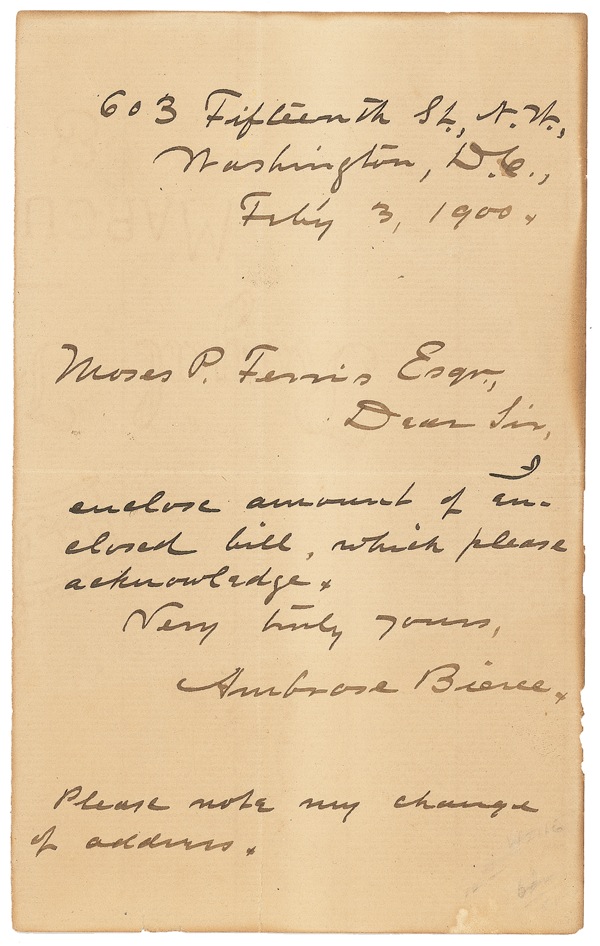 603 Fifteenth St., N.W.,
Washington, D.C.,
Feb'y 3, 1900.
Moses P. Ferris Esqr.,
Dear Sir,
I
enclose amount of en-
closed bill, which please
acknowledge.
Very truly yours,
Ambrose Bierce.
Please note my change
of address.